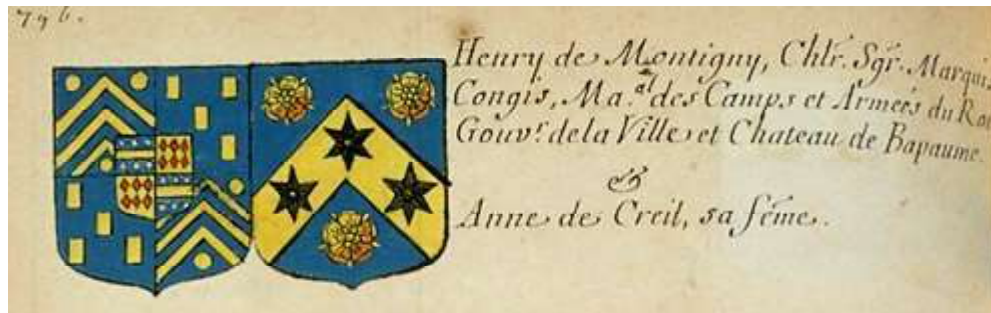 796.
Henry de Montigny, Chlr. Sgr. Marquis
Congis, Ma.al des Camps et Armeés du Roi
Gouvr. de la Ville et Chateau de Bapaume.
&
Anne de Creil, sa féme.